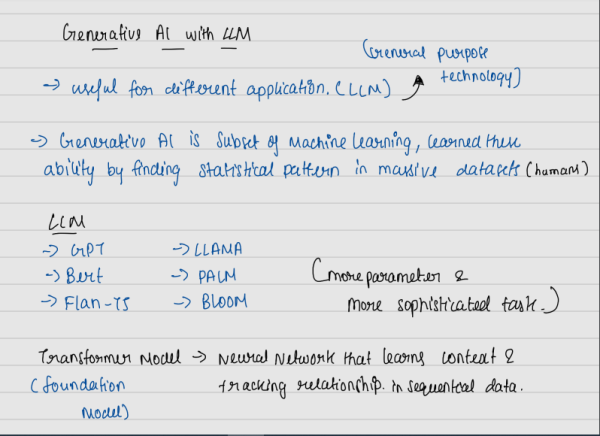 Generative AI with LLM
(General purpose
technology)
→ useful for different application. (LLM)
→ Generative AI is subset of Machine learning, learned these
ability by finding statistical pattern in massive datasets (humans)
LLM
→ GPT → LLAMA
→ Bert → PALM
→ Flan-T5 → BLOOM
(more parameter &
more sophisticated task.)
Transformer Model → Neural Network that learns context &
(foundation tracking relationship. in sequential data.
Model)